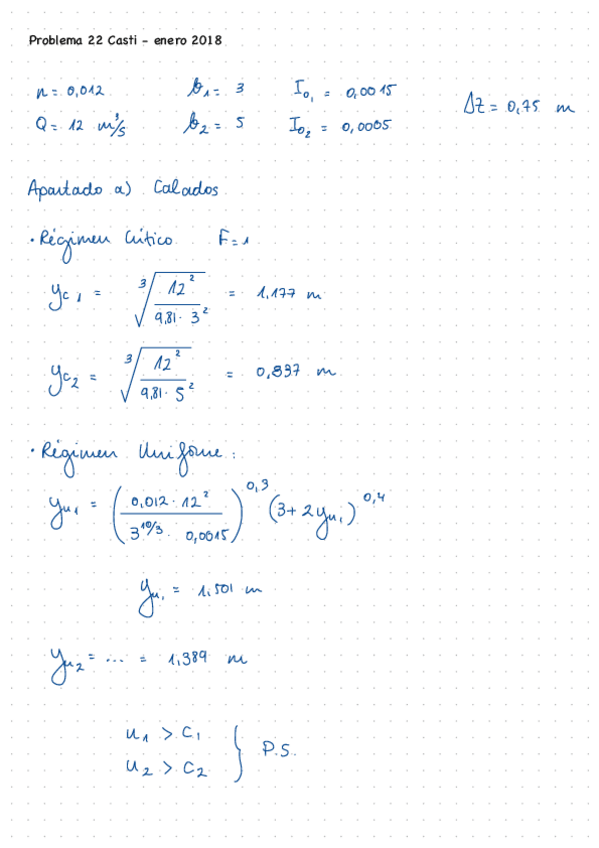 Problema 22 Casti - enero 2018
n = 0,012 b₁ = 3 I₀₁ = 0,0015
Δz = 0,75 m
Q = 12 m³/s b₂ = 5 I₀₂ = 0,0005
Apartado a) Calados
· Régimen Crítico F=1
yc₁ = ∛(12² / 9,81 · 3²) = 1,177 m
yc₂ = ∛(12² / 9,81 · 5²) = 0,837 m
· Régimen Uniforme :
yu₁ = (0,012 · 12² / 3^10/3 · 0,0015)^0,3 (3 + 2yu₁)^0,4
yu₁ = 1,501 m
yu₂ = ... = 1,389 m
u₁ > c₁
u₂ > c₂ } P.S.